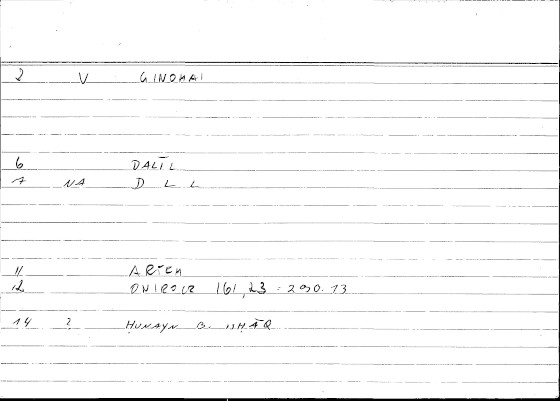 2 V GINOMAI
6 DALĪL
7 NA D L L
11 ARTEM
12 ONIROCR 161,23 = 290.13
14 ? ḤUNAYN B. ISḤĀQ